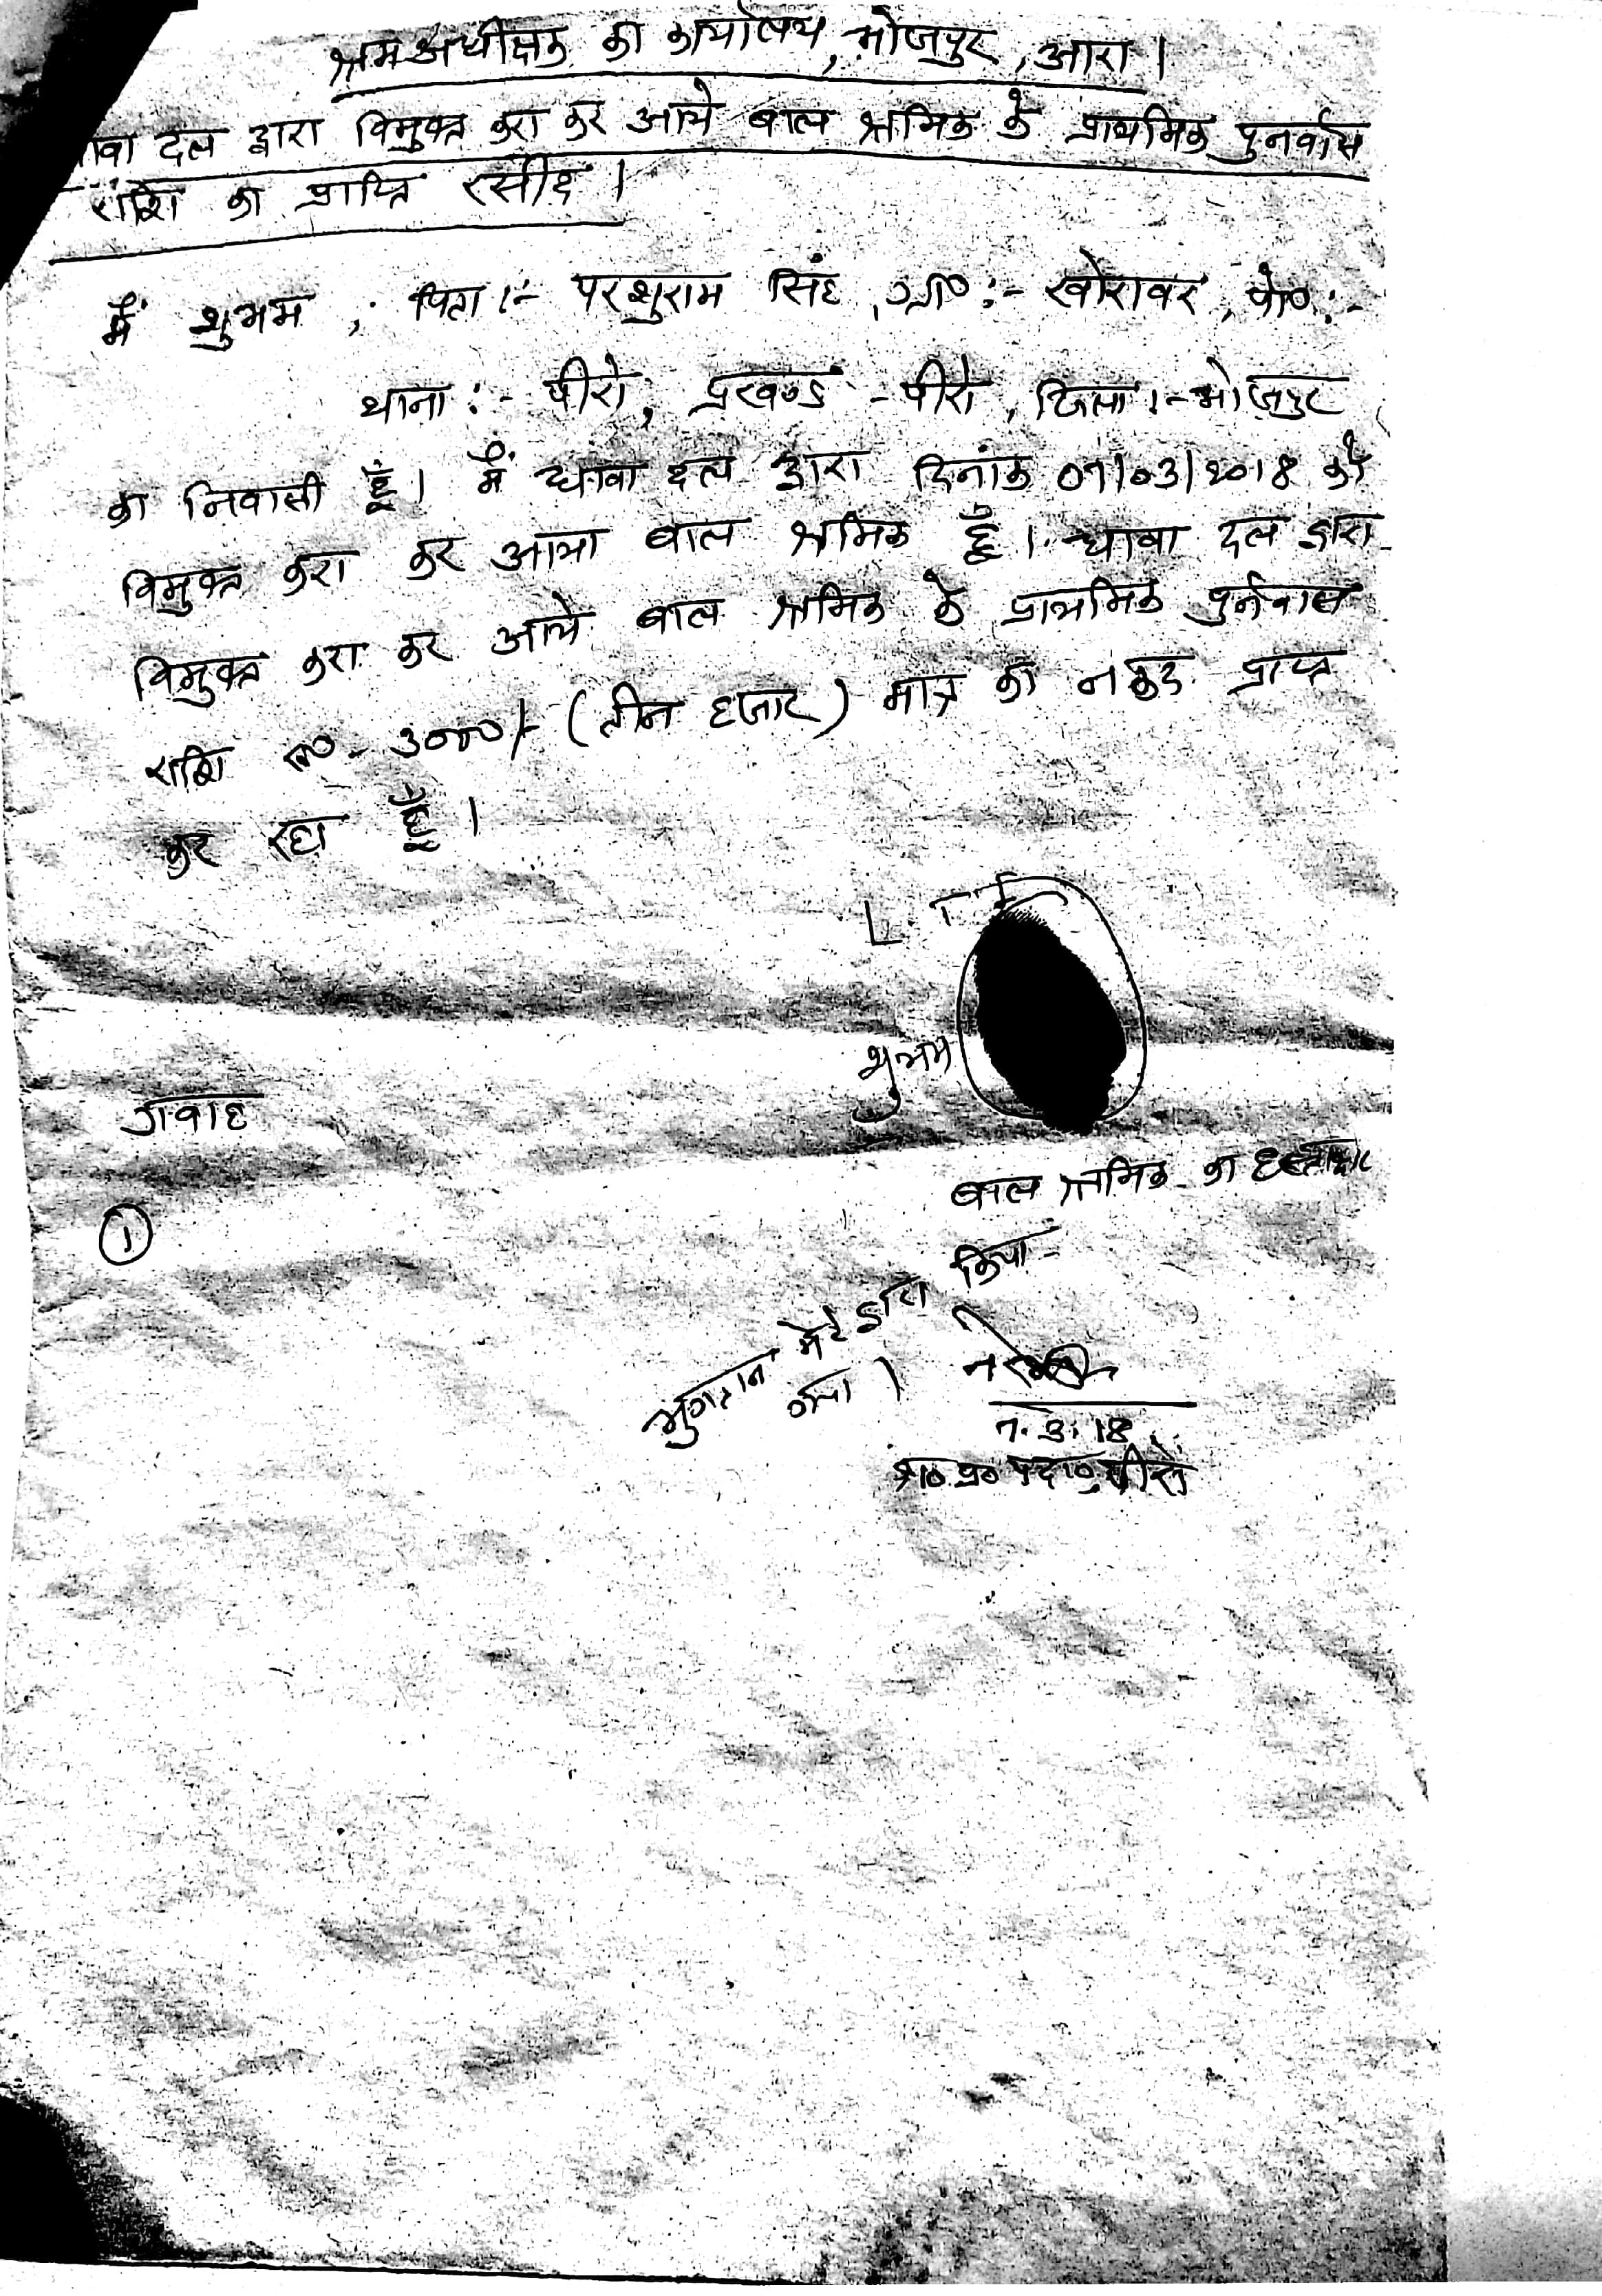 श्रम अधीक्षक का कार्यालय, भोजपुर, आरा।
धावा दल द्वारा विमुक्त करा कर आये बाल श्रमिक के प्राथमिक पुनर्वास
राशि का प्राप्ति रसीद।
मैं शुभम, पिता:- परशुराम सिंह, ग्रा०:- खोरावर, पो०:-
थाना:- पीरो, प्रखण्ड - पीरो, जिला:- भोजपुर
का निवासी हूँ। मैं धावा दल द्वारा दिनांक 07/03/2018 को
विमुक्त करा कर आया बाल श्रमिक हूँ। धावा दल द्वारा
विमुक्त करा कर आये बाल श्रमिक के प्राथमिक पुर्नवास
राशि रू० - 3000/- (तीन हजार) मात्र का नकद प्राप्त
कर रहा हूँ।
L T I
शुभम
गवाह
बाल श्रमिक का हस्ताक्षर
①
भुगतान मेरे द्वारा किया
गया।
7.3.18
श्र० प्र० पदा० पीरो